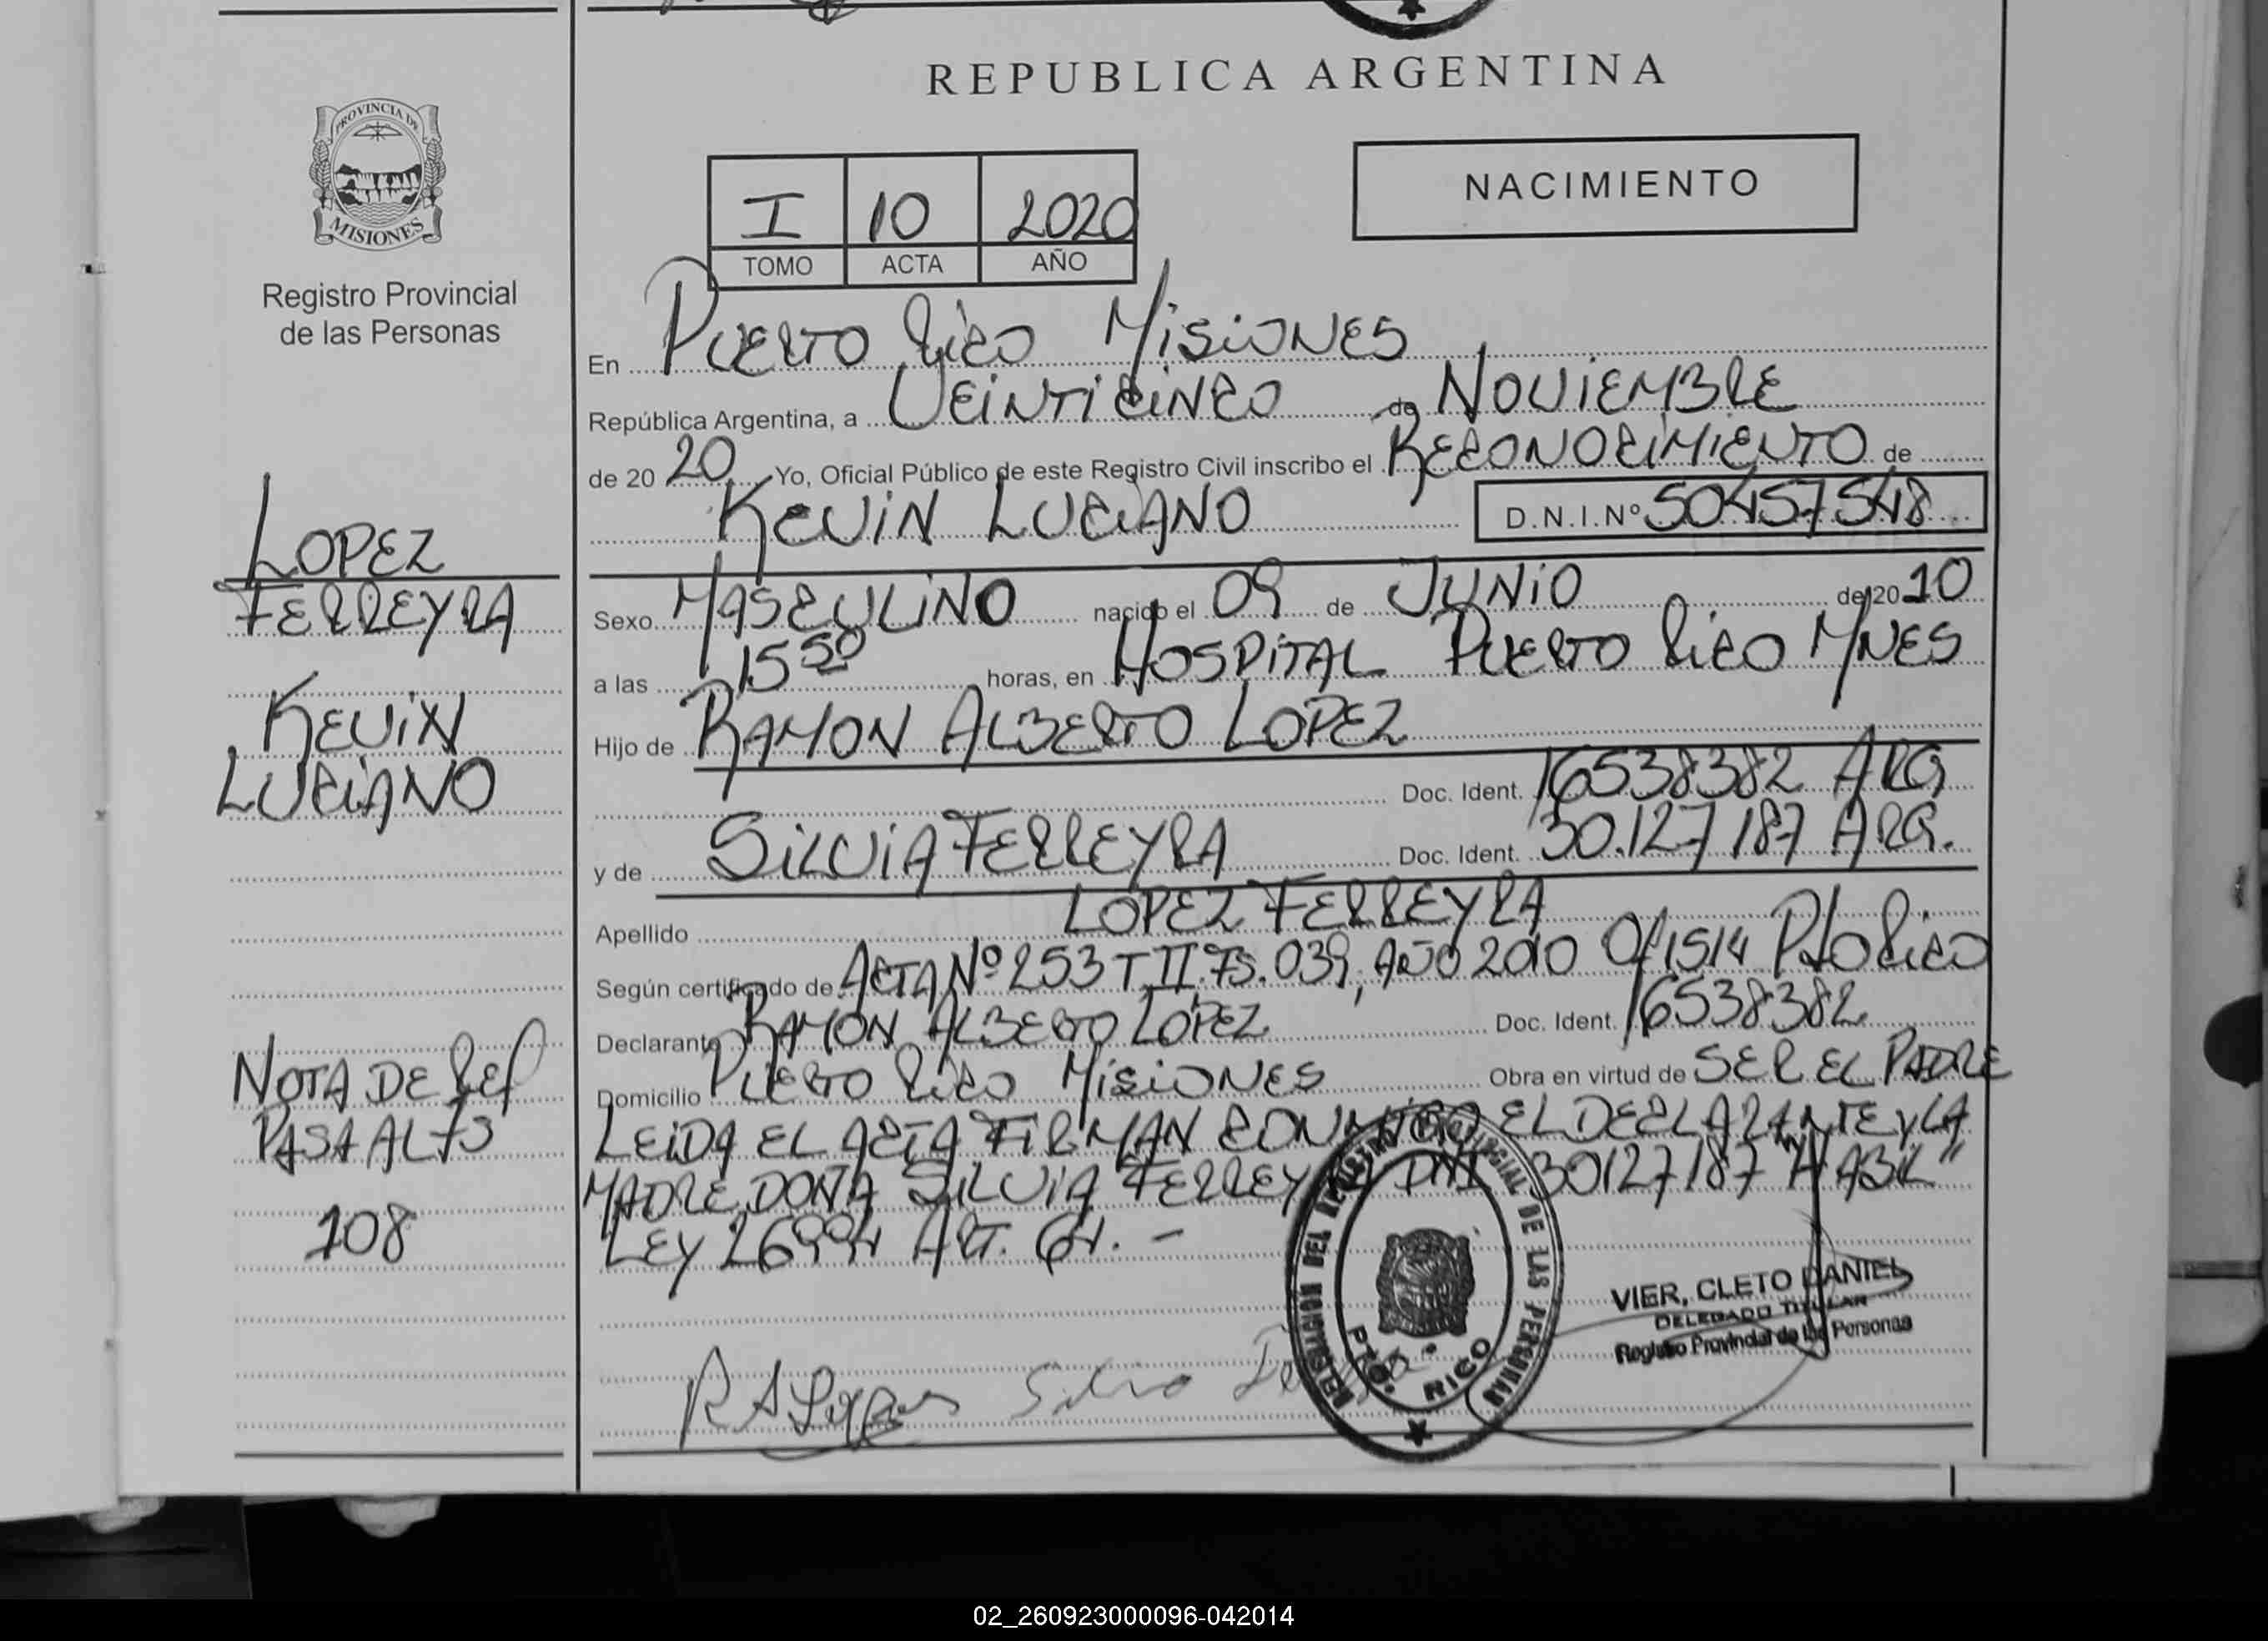 REPUBLICA ARGENTINA
PROVINCIA DE
MISIONES
Registro Provincial
de las Personas
I 10 2020
TOMO ACTA AÑO
NACIMIENTO
En PUERTO RICO MISIONES
República Argentina, a VEINTICINCO de NOVIEMBRE
de 20 20 Yo, Oficial Público de este Registro Civil inscribo el RECONOCIMIENTO de
KEVIN LUCIANO D.N.I.Nº 50457548
LOPEZ
FERREYRA
KEVIN
LUCIANO
Sexo MASCULINO nacido el 09 de JUNIO de 20 10
a las 15 50 horas, en HOSPITAL PUERTO RICO MNES
Hijo de RAMON ALBERTO LOPEZ
Doc. Ident. 16538382 ARG
y de SILVIA FERREYRA Doc. Ident. 30.127187 ARG.
Apellido LOPEZ FERREYRA
Según certificado de ACTA Nº 253 T.II. FS. 039, AÑO 2010 Of 1514 Pto Rico
Declarante RAMON ALBERTO LOPEZ Doc. Ident. 16538382
Domicilio PUERTO RICO MISIONES Obra en virtud de SER EL PADRE
LEIDA EL ACTA FIRMAN CONMIGO EL DECLARANTE Y LA
MADRE DOÑA SILVIA FERREYRA DNI 30127187 "HABIL"
LEY 26994 ART. 64. -
NOTA DE REF
PASA AL FS
108
DELEGACION DEL REGISTRO PROVINCIAL DE LAS PERSONAS
PTO. RICO
VIER, CLETO DANIEL
DELEGADO TITULAR
Registro Provincial de las Personas
R A Lopez Silvia
02_260923000096-042014